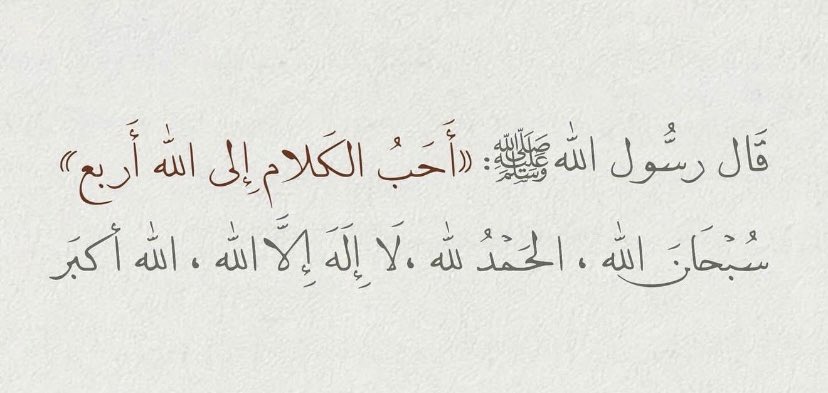 قَال رسُّول الله ﷺ: «أَحَبُ الكَلام إِلى الله أَربع»
سُبْحَانَ الله ، الحَمْدُ لله ،لَا إِلَهَ إِلَّا الله ، الله أكبَر